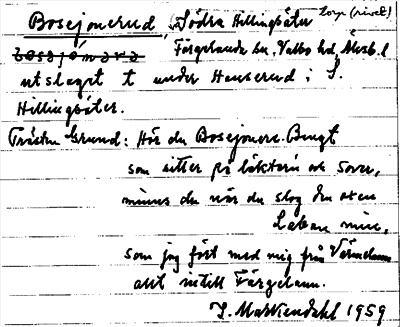 Bosejonerud, Södra Hillingsäter Torp (rivet)
Färgelanda sn, Valbo hd, Älvsb. l
utslaget t under Henserud i S.
Hillingsäter.
Trästen Grund: Hör du Bosejoners-Bengt
som sitter på läktarn och sover,
minns du när du slog den oxen
Laban min,
som jag fört med mig från Värmland
allt intill Färgelann.
I. Markendahl 1959